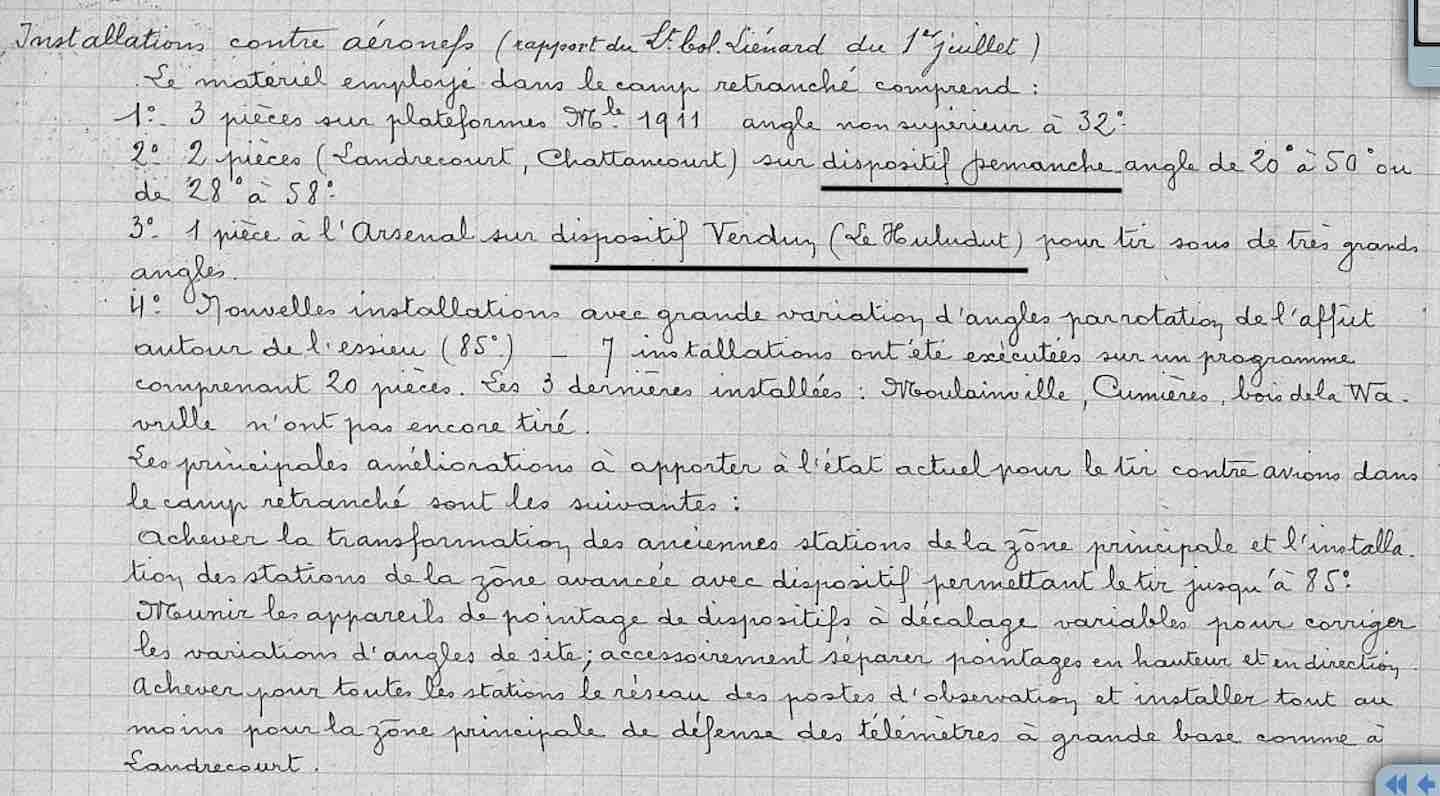 Installations contre aéronefs (rapport du Lt Col. Liénard du 1er juillet)
Le matériel employé dans le camp retranché comprend :
1º- 3 pièces sur plateformes Mle 1911 angle non supérieur à 32º.
2º 2 pièces (Landrecourt, Chattancourt) sur dispositif Pemanche angle de 20º à 50º ou
de 28º à 58º.
3º- 1 pièce à l'Arsenal sur dispositif Verdun (Le Huludut) pour tir sous de très grands
angles.
4º Nouvelles installations avec grande variation d'angles par rotation de l'affût
autour de l'essieu (85º.) - 7 installations ont été exécutées sur un programme
comprenant 20 pièces. Les 3 dernières installées : Moulainville, Cumières, bois de la Wa-
vrille n'ont pas encore tiré.
Les principales améliorations à apporter à l'état actuel pour le tir contre avions dans
le camp retranché sont les suivantes :
Achever la transformation des anciennes stations de la zône principale et l'installa-
tion des stations de la zône avancée avec dispositif permettant le tir jusqu'à 85º.
Munir les appareils de pointage de dispositifs à décalage variables pour corriger
les variations d'angles de site ; accessoirement séparer pointages en hauteur et en direction.
Achever pour toutes les stations le réseau des postes d'observation et installer tout au
moins pour la zône principale de défense des télémètres à grande base comme à
Landrecourt.